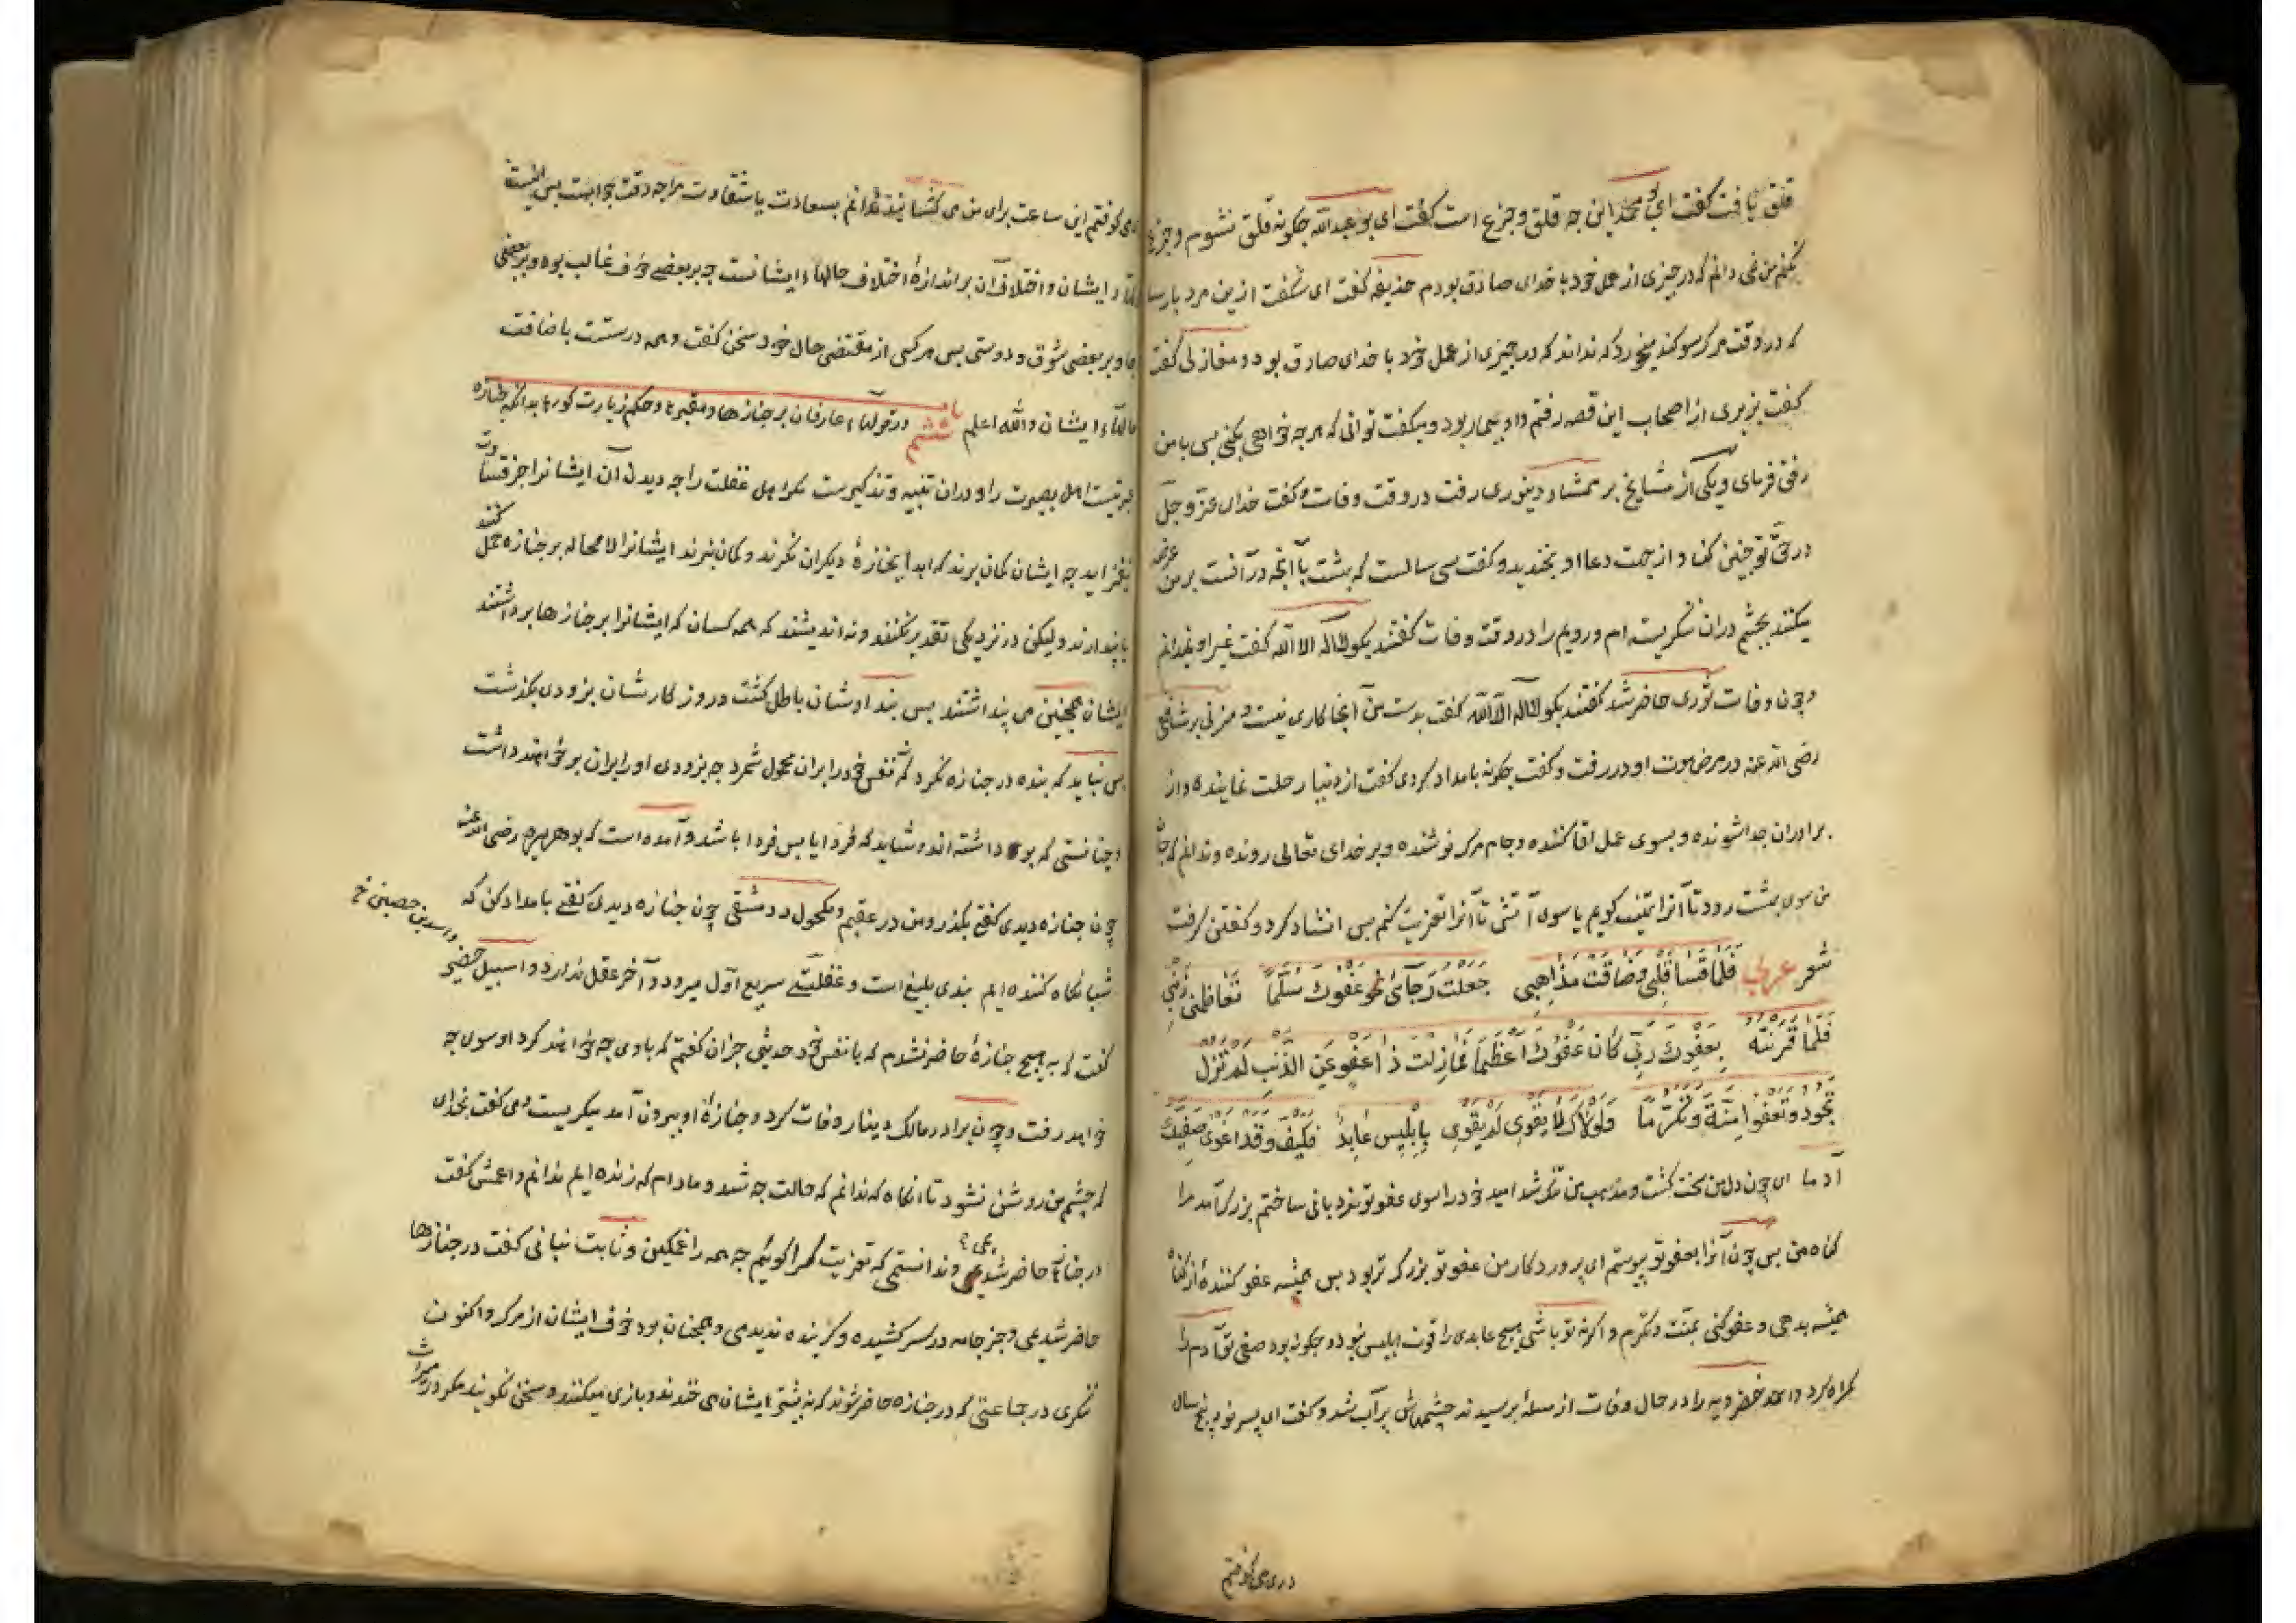 قلق یافت گفت ای بو محمد این چه قلق و جزع است گفت ای بو عبدالله چگونه قلق نشوم و جزع
نکنم من نمی دانم که در چیزی از عمل خود با خدای صادق بودم حذیفه گفت ای شگفت ازین مرد پارسا
که در وقت مرگ سوگند میخورد که نداند که در چیزی از عمل خود با خدای صادق بود و مغازلی گفت
گفت بر پیری از اصحاب این قصه رفتم و او بیمار بود و میگفت توانی که هر چه خواهی بکنی پس با من
رفق فرمای و یکی از مشایخ بر ممشاد دینوری رفت در وقت وفات و گفت خدای عز و جل
در حق تو چنین کناد از جهت دعا او بخندید و گفت سی سالست که بهشت با آنچه در آنست بر من عرض
میکنند بچشم دران ننگریسته ام و رویم را در وقت وفات گفتند بگو لااله الا الله گفت غیر او نمیدانم
و چون وفات ثوری حاضر شد گفتند بگو لااله الا الله گفت بدست من آنجا کاری نیست و مزنی بر شافعی
رضی الله عنه در مرض موت او در رفت و گفت چگونه بامداد کردی گفت از دنیا رحلت نماینده و از
برادران جدا شونده و بسوی عمل لقا کننده و جام مرگ نوشنده و بر خدای تعالی رونده و ندانم که جان
من سوی بهشت رود تا آنرا تهنیت گویم یا سوی آتش تا آنرا تعزیت کنم پس انشاد کرد و گفتن گرفت
شعر عربی فلما قسا قلبی و ضاقت مذاهبی جعلت رجائی نحو عفوک سلما تعاظمنی ذنبی
فلما قرنته بعفوک ربی کان عفوک اعظما فما زلت ذا عفو عن الذنب لم تزل
تجود و تعفو منة و تکرما فلولاک لما یقوی لم یقوی بابلیس عابد فکیف و قد اغوی صفیک
آدما ای چون دل من سخت گشت و مذهب من تنگ شد امید خود را سوی عفو تو نردبانی ساختم بزرگ آمد مرا
گناه من پس چون آنرا بعفو تو پیوستم ای پروردگار من عفو تو بزرگ تر بود پس همیشه عفو کننده از گناه
همیشه بدهی و عفو کنی بمنت و تکرم و اگر نه تو باشی هیچ عابدی را قوت ابلیس نبود و چگونه بود صفی تو آدم را
گمراه کرد و احمد خضرویه را در حال وفات از مسئله پرسیدند چشمهاش پر آب شد و گفت ای پسر نود پنج سال
دری می کوفتم
دری کوفتم این ساعت برای من می گشایند ندانم بسعادت یا شقاوت مرا چه وقت جوابست پس اینست
ایشان و اختلاف آن بر اندازه اختلاف حالهاء ایشانست چه بر بعضی خوف غالب بود و بر بعضی
رجا و بر بعضی شوق و دوستی پس هر کسی از مقتضی حال خود سخن گفت و همه درستست باضافت
حالهاء ایشان والله اعلم باب ششم در قولهاء عارفان بر جنازها و مقبره و حکم زیارت گورها بدانکه جنازه
عبرتیست اهل بصیرت را و دران تنبیه و تذکیرست مگر اهل غفلت را چه دیدن آن ایشانرا جز قساوت
نفزاید چه ایشان گمان برند که ابدا بجنازه دیگران نگرند و گمان نبرند ایشانرا لا محاله بر جنازه حمل کنند
یا پندارند ولیکن در نزدیکی تقدیر نکنند و نه اندیشند که همه کسان که ایشانرا بر جنازها برداشتند
ایشان همچنین می پنداشتند پس پنداشتشان باطل گشت و روزگارشان بزودی بگذشت
پس نباید که بنده در جنازه نگرد که نفس خود را بران محمول شمرد چه بزودی او را بران بر خواهند داشت
و چنانستی که برداشته اند و شاید که فردا یا پس فردا باشد و آمده است که بو هریره رضی الله عنه
چون جنازه دیدی گفتی بگذر و من در عقبم و مکحول دمشقی چون جنازه دیدی گفتی بامداد کن که
شبانگاه کننده ایم پندی بلیغ است و غفلتی سریع اول میرود و آخر عقل ندارد و اسید بن حضیر
واسد بن حصین خ
گفت که به هیچ جنازه حاضر نشدم که با نفس خود حدیثی جز آن گفتم که با وی چه خواهند کرد او سوی چه
خواهد رفت و چون برادر مالک دینار وفات کرد و جنازه او بیرون آمد میگریست و می گفت بخدای
که چشم من روشن نشود تا آنگاه که ندانم که حالت چه شد و مادام که زنده ایم ندانم و اعمش گفت
در جنازها حاضر شدیمی و ندانستمی که تعزیت کرا گوئیم چه همه را غمگین و ثابت بنانی گفت در جنازها
حاضر شدیمی و جز جامه در سر کشیده و گرینده ندیدمی و همچنان بود خوف ایشان از مرگ و اکنون
ننگری در جماعتی که در جنازه حاضر شوند که نه بیشتر ایشان می خندند و بازی میکنند و سخن نگویند مگر در میراث